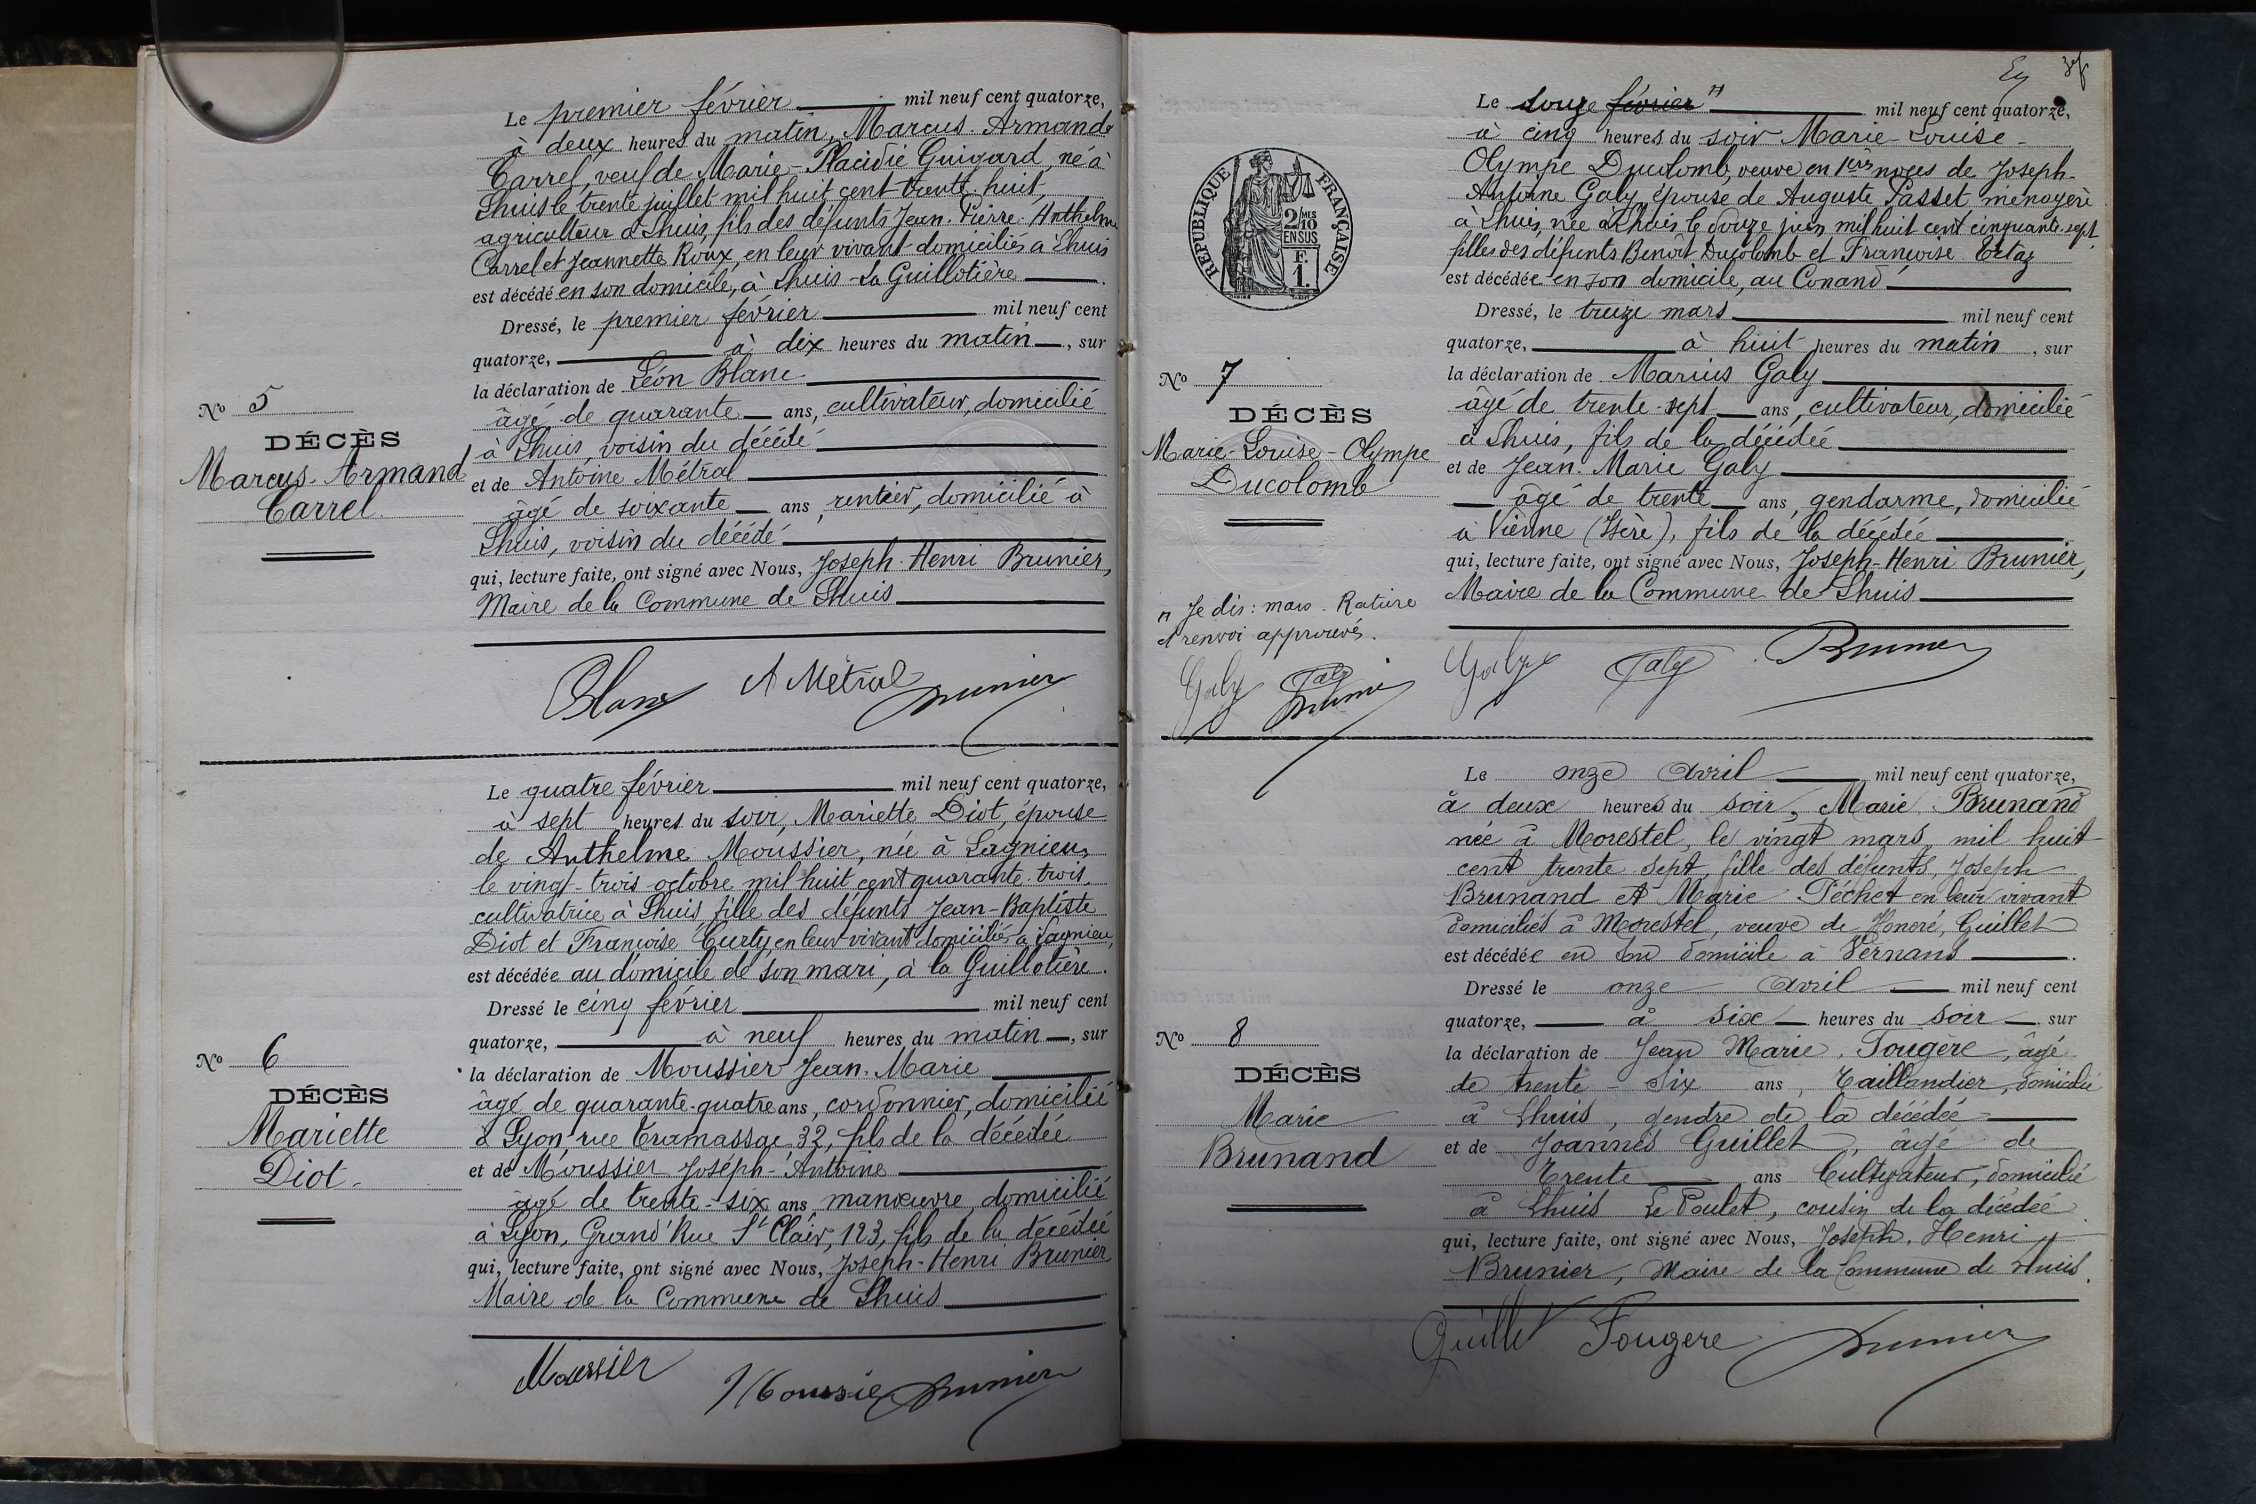 Le premier février mil neuf cent quatorze,
à deux heures du matin, Marcus-Armand
Carrel, veuf de Marie-Placidie Guigard, né à
Lhuis le trente juillet mil huit cent trente-huit,
agriculteur à Lhuis, fils des défunts Jean-Pierre-Anthelme
Carrel et Jeannette Roux, en leur vivant domiciliés à Lhuis
est décédé en son domicile, à Lhuis-La Guillotière.
Dressé, le premier février mil neuf cent
quatorze, à dix heures du matin, sur
la déclaration de Léon Blanc
âgé de quarante ans, cultivateur, domicilié
à Lhuis, voisin du décédé
et de Antoine Métral
âgé de soixante ans, rentier, domicilié à
Lhuis, voisin du décédé
qui, lecture faite, ont signé avec Nous, Joseph-Henri Brunier,
Maire de la Commune de Lhuis
No 5
DÉCÈS
Marcus-Armand
Carrel.
Blanc A Métral Brunier
Le quatre février mil neuf cent quatorze,
à sept heures du soir, Mariette Diot, épouse
de Anthelme Moussier, née à Lagnieu,
le vingt-trois octobre mil huit cent quarante-trois,
cultivatrice à Lhuis, fille des défunts Jean-Baptiste
Diot et Françoise Curty, en leur vivant domiciliés à Lagnieu,
est décédée au domicile de son mari, à la Guillotière.
Dressé le cinq février mil neuf cent
quatorze, à neuf heures du matin, sur
la déclaration de Moussier Jean-Marie
âgé de quarante-quatre ans, cordonnier, domicilié
à Lyon, rue Tramassac 32, fils de la décédée
et de Moussier Joseph-Antoine
âgé de trente-six ans manœuvre, domicilié
à Lyon, Grand'Rue St Clair, 123, fils de la décédée
qui, lecture faite, ont signé avec Nous, Joseph-Henri Brunier
Maire de la Commune de Lhuis
No 6
DÉCÈS
Mariette
Diot.
Moussier Moussier Brunier
RÉPUBLIQUE FRANÇAISE
2/10 MES
EN SUS
F.
1.
Le douze février mil neuf cent quatorze,
à cinq heures du soir Marie-Louise-
Olympe Ducolomb, veuve en 1ères noces de Joseph-
Antoine Galy, épouse de Auguste Passet ménagère
à Lhuis, née à Lhuis le douze juin mil huit cent cinquante-sept,
fille des défunts Benoît Ducolomb et Françoise Tétaz
est décédée en son domicile, au Conand
Dressé, le treize mars mil neuf cent
quatorze, à huit heures du matin, sur
la déclaration de Marius Galy
âgé de trente-sept ans, cultivateur, domicilié
à Lhuis, fils de la décédée
et de Jean-Marie Galy
âgé de trente ans, gendarme, domicilié
à Vienne (Isère), fils de la décédée
qui, lecture faite, ont signé avec Nous, Joseph-Henri Brunier,
Maire de la Commune de Lhuis
No 7
DÉCÈS
Marie-Louise-Olympe
Ducolomb
Je dis: mars. Rature
et renvoi approuvés.
Galy Galy
Brunier
Galy Galy Brunier
Le onze avril mil neuf cent quatorze,
à deux heures du soir, Marie Brunand
née à Morestel, le vingt mars mil huit
cent trente sept, fille des défunts, Joseph
Brunand et Marie Péchet en leur vivant
domiciliés à Morestel, veuve de Honoré, Guillet
est décédée en son domicile à Vernans.
Dressé le onze avril mil neuf cent
quatorze, à six heures du soir, sur
la déclaration de Jean Marie, Fougère, âgé
de trente-six ans, Taillandier, domicilié
à Lhuis, gendre de la décédée
et de Joannès Guillet, âgé de
Trente ans Cultivateur, domicilié
à Lhuis Le Poulet, cousin de la décédée
qui, lecture faite, ont signé avec Nous, Joseph, Henri
Brunier, Maire de la Commune de Lhuis.
No 8
DÉCÈS
Marie
Brunand
Guillet Fougere Brunier